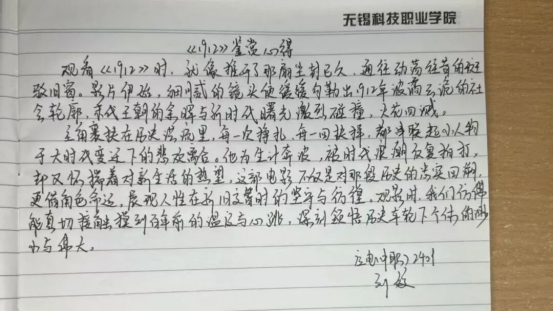 无锡科技职业学院
《1912》鉴赏心得
观看《1912》时,就像推开了那扇尘封已久、通往动荡往昔的斑
驳旧窗。影片伊始,细腻的镜头便缓缓勾勒出1912年波谲云诡的社
会轮廓,末代王朝的余晖与新时代曙光激烈碰撞,火花四溅。
主角裹挟在历史浪病里,每一次挣扎、每一回抉择,都诠释起小人物
于大时代变迁下的悲欢离合。他为生计奔波,被时代浪潮反复拍打,
却又仍揣着对新生活的热望,这部电影不仅是对那段历史的忠实回溯,
更借角色命运,展现人性在新旧交替时的坚守与彷徨。观影时,我们仿佛
能真切触摸到百年前的温度与心跳,深刻领悟历史车轮下个体的渺
小与伟大。
应电(中职)2401
刘